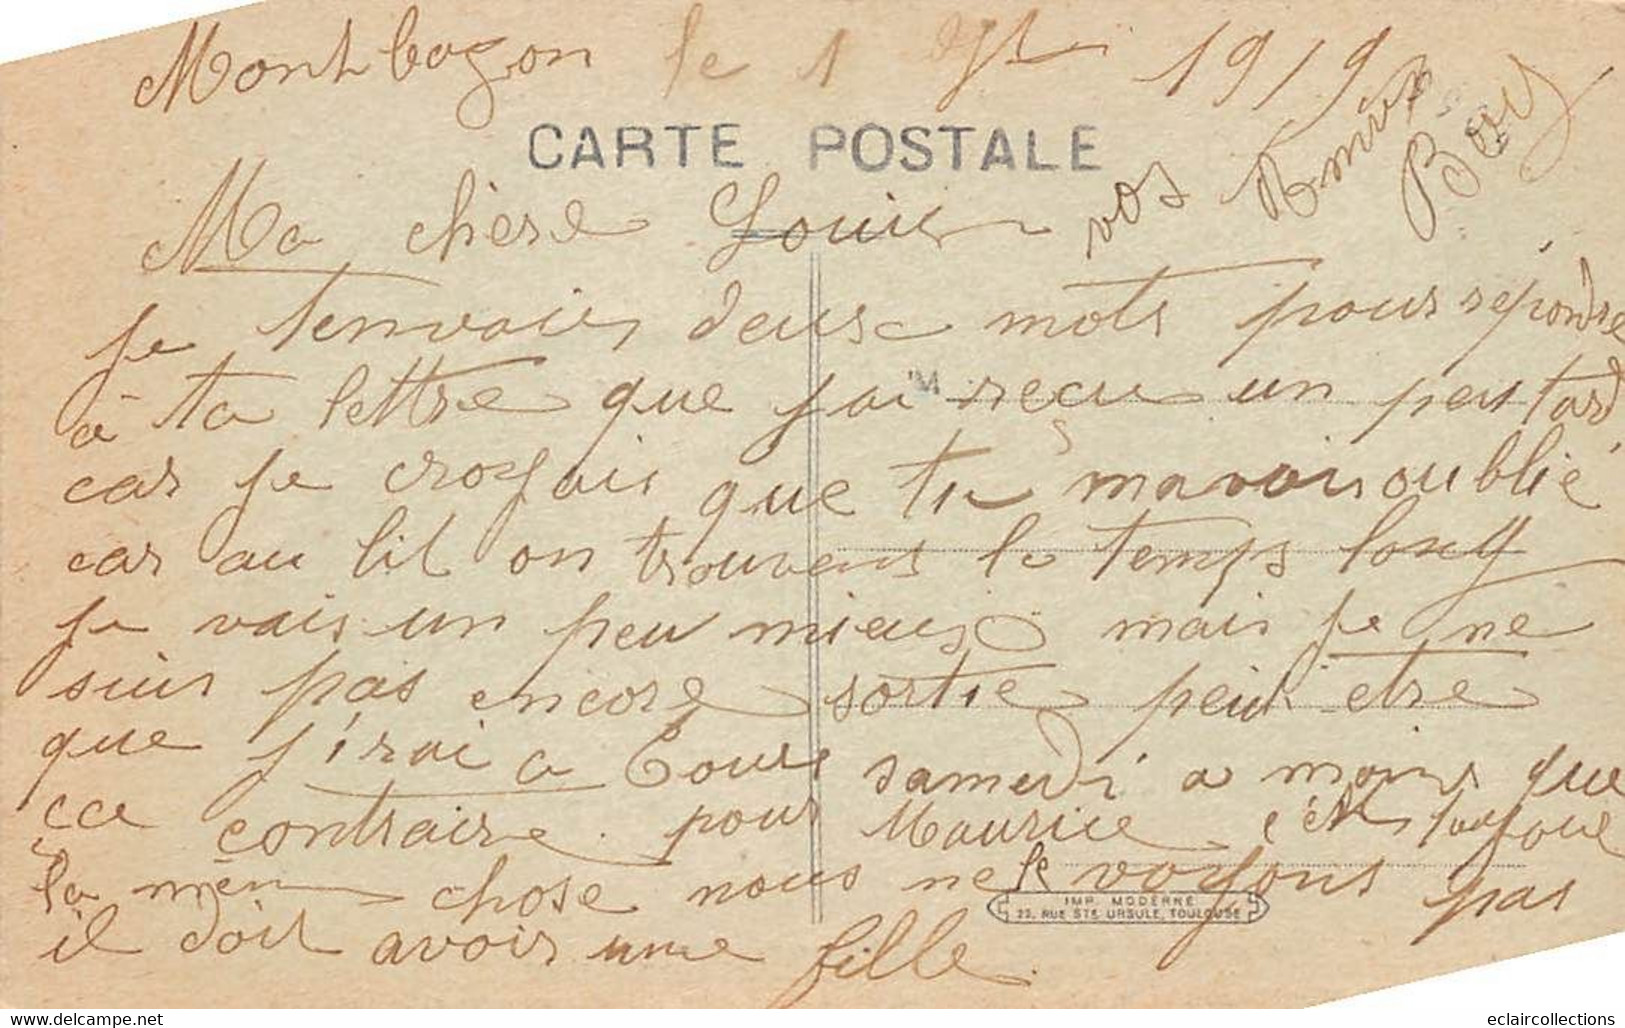 Montbazon le 1 1919
CARTE POSTALE
Ma chère Louise
vos Amies
je t'envoies deux mots pour répondre
à ta lettre que j'ai reçu un peu tard
car je croyais que tu mavois oublié
car au lit on trouvent le temps long
je vais un peu mieus mais je ne
suis pas encore sortie peut etre
que j'irai a Tours samedi a moins que
ça contraire. pour Maurice c'est toujour
la mêm chose nous ne le voyons pas
il doit avoir une fille.
IMP. MODERNE
22, RUE STE URSULE, TOULOUSE
eclaircollections